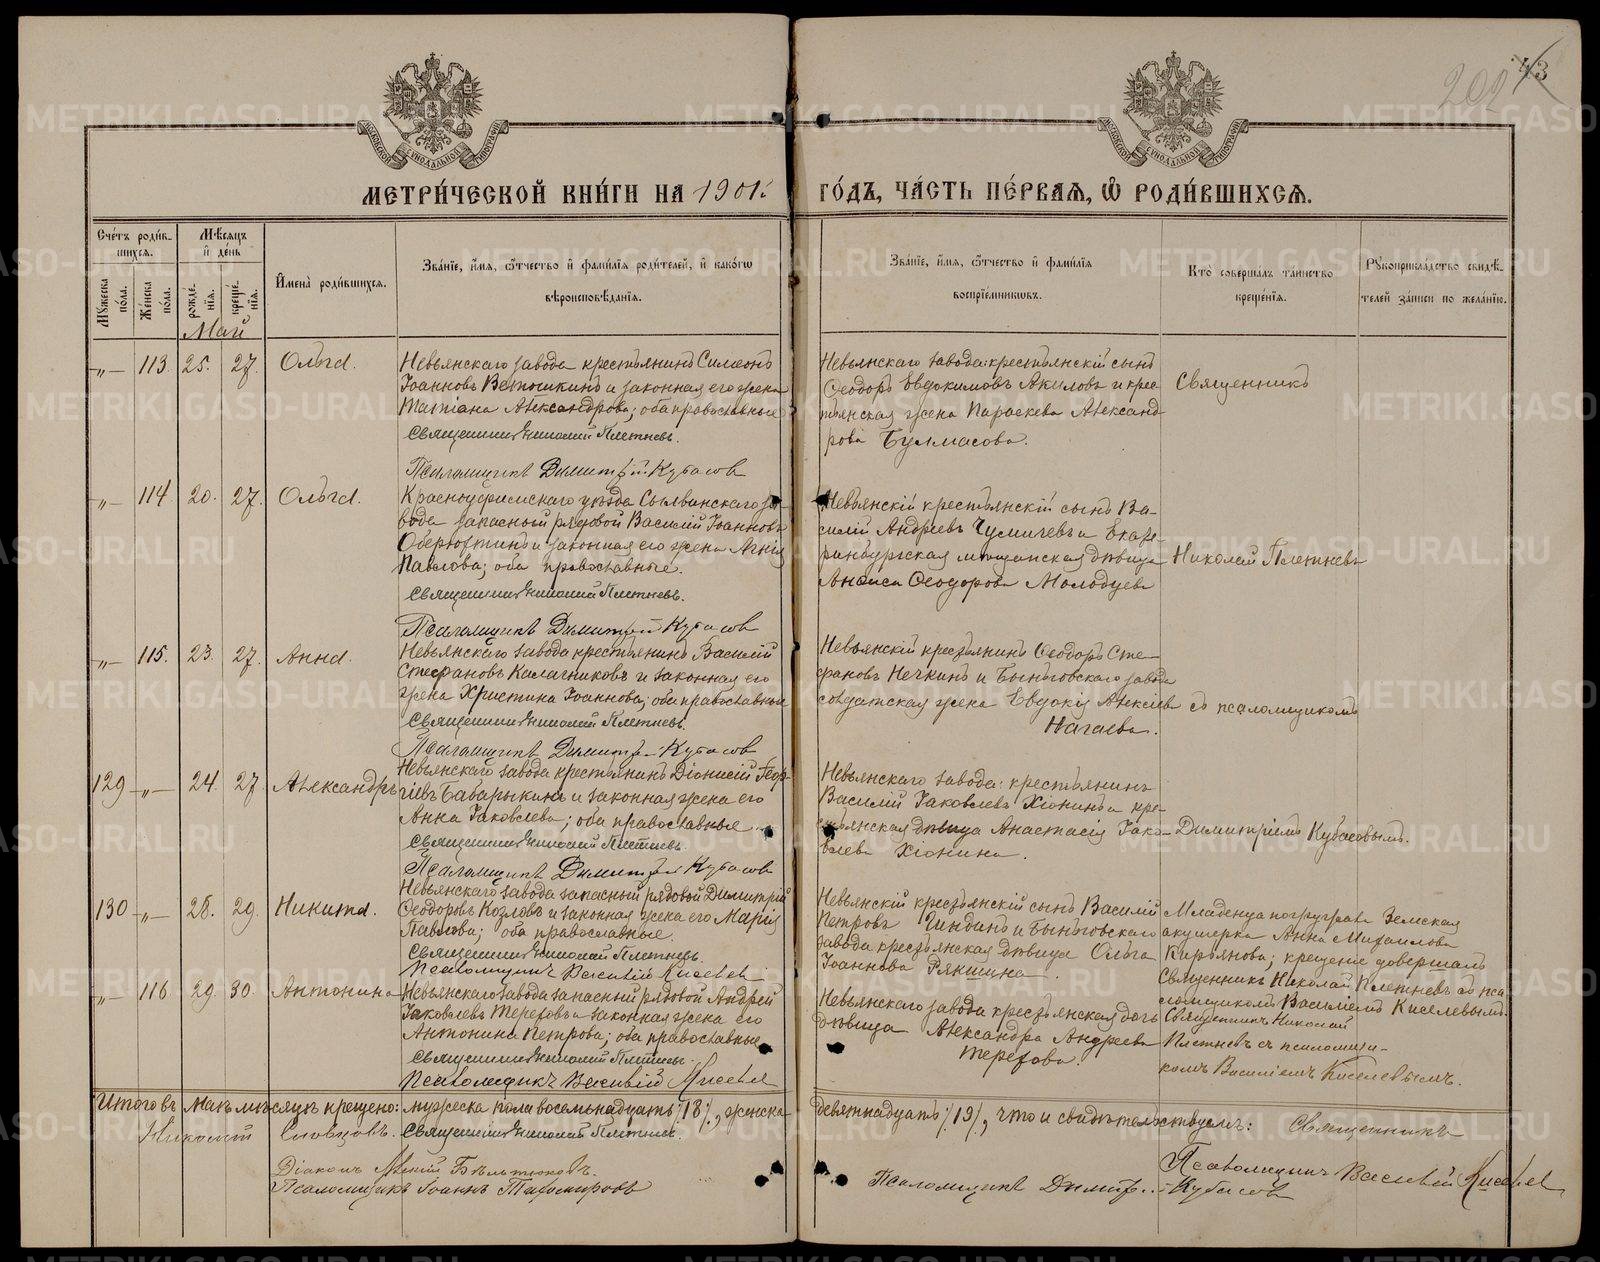 202 43
МОСКОВСКОЙ СѴНОДАЛЬНОЙ ТИПОГРАФІИ
МОСКОВСКОЙ СѴНОДАЛЬНОЙ ТИПОГРАФІИ
МЕТРИ́ЧЕСКОЙ КНИ́ГИ НА 1901. ГО́ДЪ, ЧА́СТЬ ПЕ́РВАЯ, Ѽ РОДИ́ВШИХСЯ.
Сче́тъ роди́в-
шихся.
Мѣ́сяцъ
и҆ де́нь
Мꙋ́жеска по́ла.
Же́нска по́ла.
рожде́-
нїя.
креще́-
нїя.
И҆мена̀ роди́вшихся.
Зва́нїе, и҆́мя, ѻ҆́тчество и҆ фами́лїя роди́телей, и҆ како́гѡ
вѣроисповѣ́данїя.
Зва́нїе, и҆́мя, ѻ҆́тчество и҆ фами́лїя
воспрїе́мникѡвъ.
Кто̀ соверша́лъ та́инство
креще́нїя.
Рꙋкоприкла́дство свидѣ́-
телей за́писи по жела́нїю.
Май
„— 113. 25. 27. Ольга.
Невьянскаго завода крестьянинъ Симеонъ
Іоанновъ Ветошкинъ и законная его жена
Татіана Александрова; оба православные
Священникъ Николай Плетневъ.
Псаломщикъ Димитрій Кубасовъ
Невьянскаго завода: крестьянскій сынъ
Ѳеодоръ Евдокимовъ Акиловъ и крес-
тьянская жена Параскева Александ-
рова Булмасова.
Священникъ
„— 114 20. 27. Ольга.
Красноуфимскаго уѣзда Сылванскаго за-
вода запасный рядовой Василій Іоанновъ
Оберюхтинъ и законная его жена Агнія
Павлова; оба православные.
Священникъ Николай Плетневъ.
Псаломщикъ Димитрій Кубасовъ
Невьянскій крестьянскій сынъ Ва-
силій Андреевъ Чумичевъ и Екате-
ринбургская мѣщанская дѣвица
Анфиса Ѳеодорова Молодцева
Николай Плетневъ
„— 115. 23. 27. Анна.
Невьянскаго завода крестьянинъ Василій
Стефановъ Калачниковъ и законная его
жена Христина Іоаннова; оба православные
Священникъ Николай Плетневъ.
Псаломщикъ Димитрій Кубасовъ
Невьянскій крестьянинъ Ѳеодоръ Сте-
фановъ Нечкинъ и Быньговскаго завода
солдатская жена Евдокія Алексіева
Нагаева.
съ псаломщикомъ
129 —„— 24. 27. Александръ
Невьянскаго завода крестьянинъ Діонисій Геор-
гіевъ Баварыкинъ и законная жена его
Анна Іаковлева; оба православные
Священникъ Николай Плетневъ
Псаломщикъ Димитрій Кубасовъ
Невьянскаго завода: крестьянинъ
Василій Іаковлевъ Хіонинъ и кре-
стьянская дѣвица Анастасія Іако-
влева Хіонина.
Димитріемъ Кубасовымъ.
130 —„— 28. 29. Никита.
Невьянскаго завода запасный рядовой Димитрій
Ѳеодоровъ Козловъ и законная жена его Марія
Павлова; оба православные.
Священникъ Николай Плетневъ.
Псаломщикъ Василій Киселев
Невьянскій крестьянскій сынъ Василій
Петровъ и Быньговскаго
завода крестьянская дѣвица Ольга
Іоаннова Рякшина.
Младенца погружала Земская
акушерка Анна Михаилова
Кирьянова; крещеніе довершалъ
Священникъ Николай Плетневъ съ пса-
ломщикомъ Василіемъ Киселевымъ.
„— 116 29. 30. Антонина
Невьянскаго завода запасный рядовой Андрей
Іаковлевъ Тереховъ и законная жена его
Антонина Петрова; оба православные.
Священникъ Николай Плетневъ.
Псаломщикъ Василій Киселев
Невьянскаго завода крестьянская дочь
дѣвица Александра Андреева
Терехова.
Священникъ Николай
Плетневъ съ псаломщи-
комъ Василіемъ Киселевымъ.
Итого въ Маѣ мѣсяцѣ крещено: мужеска пола восемьнадцать /:18:/, женска девятнадцать /:19:/, что и свидѣтельствуемъ: Священникъ
Николай Словцовъ. Священникъ Николай Плетневъ.
Діаконъ Бѣльтюковъ.
Псаломщикъ Іоаннъ Тихомировъ
Псаломщикъ Димитрій Кубасов
Псаломщикъ Василій Киселев
METRIKI.GASO-URAL.RU